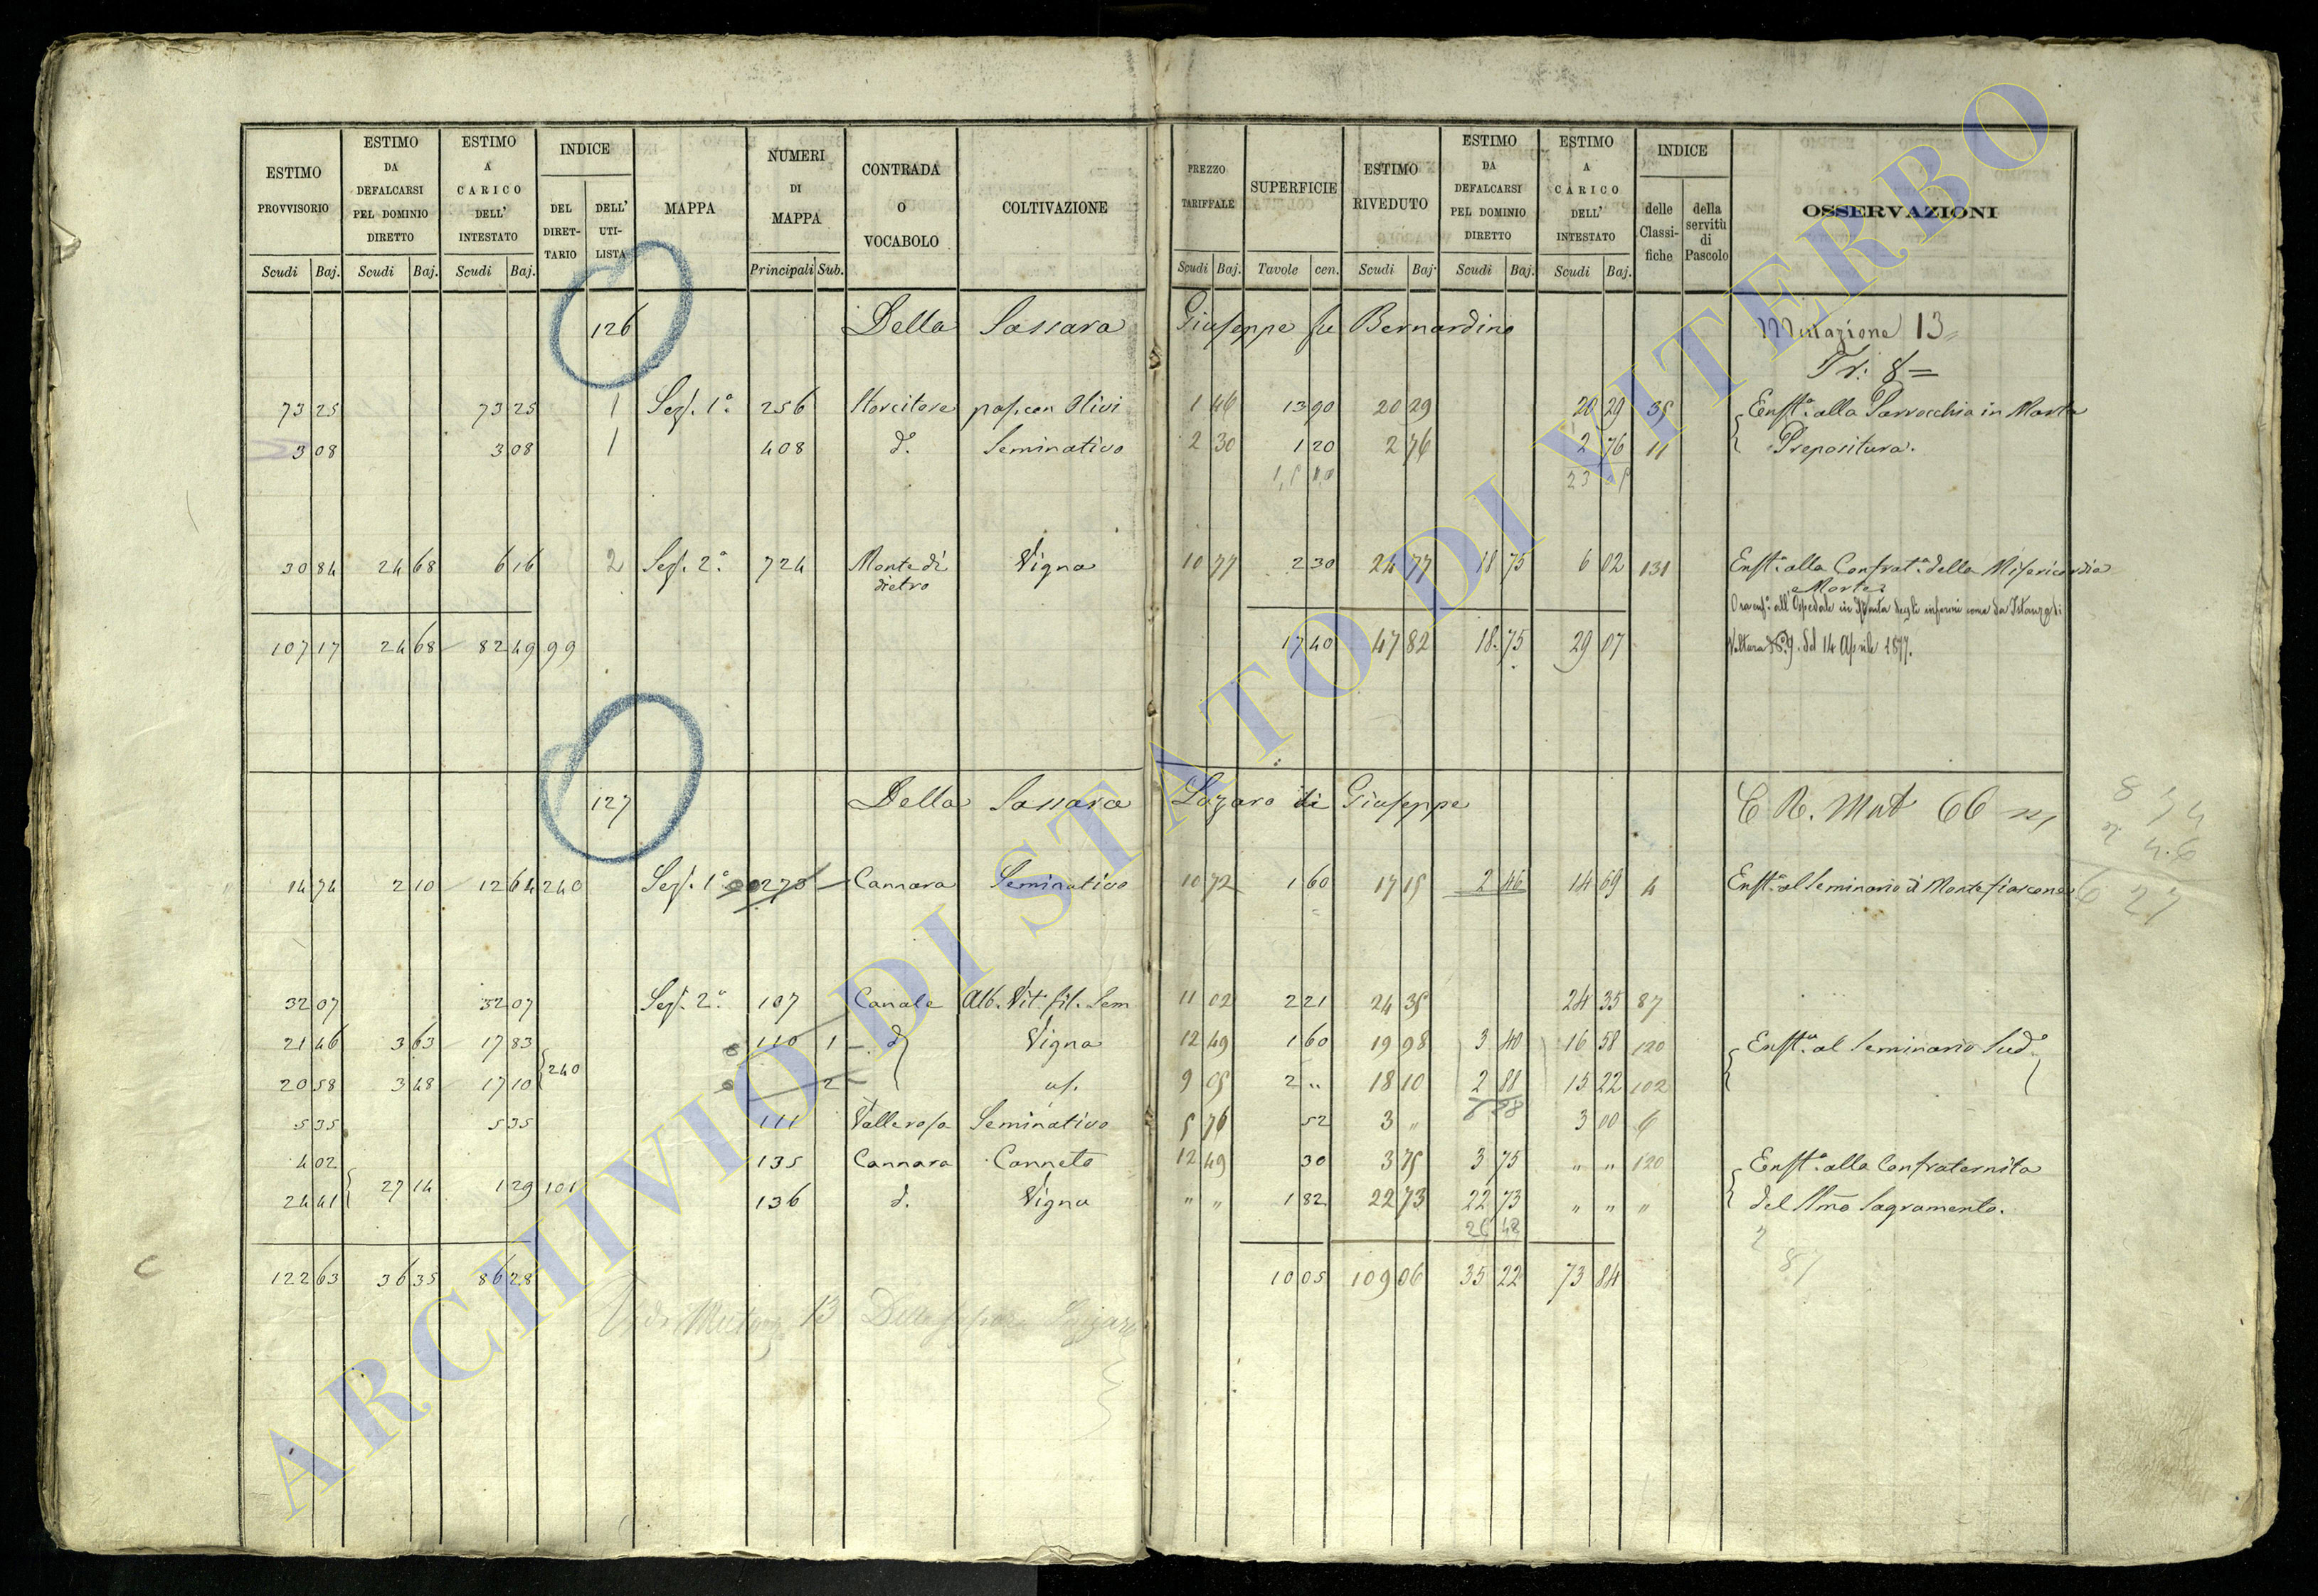 ESTIMO PROVVISORIO
ESTIMO DA DEFALCARSI PEL DOMINIO DIRETTO
ESTIMO A CARICO DELL' INTESTATO
INDICE
DEL DIRET-TARIO
DELL' UTI-LISTA
MAPPA
NUMERI DI MAPPA
CONTRADA O VOCABOLO
COLTIVAZIONE
PREZZO TARIFFALE
SUPERFICIE
ESTIMO RIVEDUTO
ESTIMO DA DEFALCARSI PEL DOMINIO DIRETTO
ESTIMO A CARICO DELL' INTESTATO
INDICE
delle Classi-fiche
della servitù di Pascolo
OSSERVAZIONI
Scudi Baj. Scudi Baj. Scudi Baj. Principali Sub. Scudi Baj. Tavole cen. Scudi Baj. Scudi Baj. Scudi Baj.
126 Della Sassara Giuseppe fu Bernardino Mutazione 13
Tr: 8=
73 25 73 25 1 Sez. 1a 256 pas. con Olivi 1 46 13 90 20 29 20 29 35 Enft.a alla Parrocchia in Marta
3 08 3 08 1 408 d.o Seminativo 2 30 1 20 2 76 2 76 11 Prepositura.
30 84 24 68 6 16 2 Sez. 2a 724 Monte di dietro Vigna 10 77 2 30 24 77 18 75 6 02 131 Enft.a alla Confrat.a della Misericordia
e Morte
Ora enf.a all'Ospedale in degli infermi come da Istanza di
107 17 24 68 82 49 99 17 40 47 82 18 75 29 07 Voltura del 14 Aprile 1877.
127 Della Sassara Lazaro di Giuseppe C. R. Mut 66
14 74 2 10 12 64 240 Sez. 1a 1273 Cannara Seminativo 10 72 1 60 17 15 2 46 14 69 4 Enft.a al Seminario di Montefiascone
32 07 32 07 Sez. 2a 107 Canale Alb. Vit. fil. Sem 11 02 2 21 24 35 24 35 87
21 46 3 63 17 83 240 110 1 d.o Vigna 12 49 1 60 19 98 3 40 16 58 120 Enft.a al Seminario Sud.o
20 58 3 48 17 10 2 9 05 2 " 18 10 2 88 15 22 102
5 35 5 35 111 Vallerosa Seminativo 5 76 52 3 " 3 00 6
4 02 135 Cannara Canneto 12 49 30 3 75 3 75 " " 120 Enft.a alla Confraternita
24 41 27 14 1 29 101 136 d.o Vigna " " 1 82 22 73 22 73 " " " del Smo Sagramento.
26 48
122 63 36 35 86 28 10 05 109 06 35 22 73 84
87
13 Della Sassara Lazzaro
ARCHIVIO DI STATO DI VITERBO